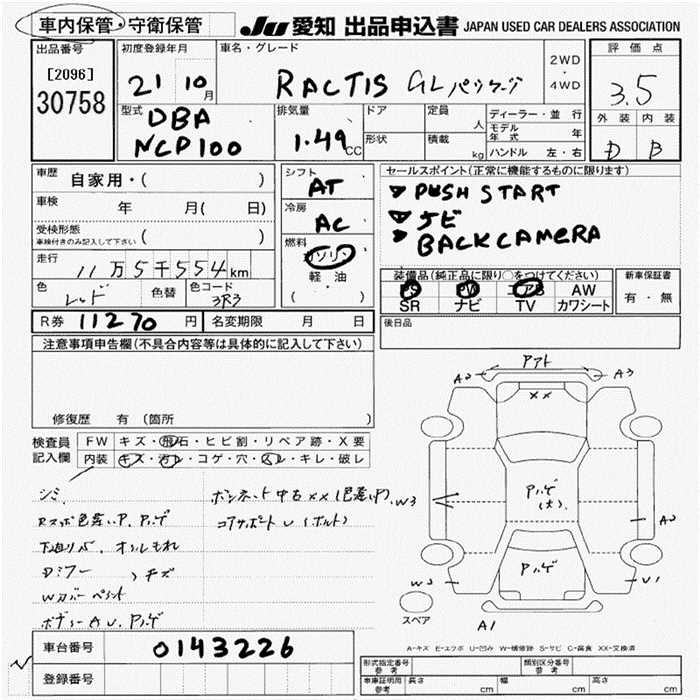 車内保管・守衛保管
JU 愛知 出品申込書 JAPAN USED CAR DEALERS ASSOCIATION
出品番号
[2096]
30758
初度登録年月
21 10月
車名・グレード
RACTIS GLパッケージ
2WD
・
4WD
評価点
3.5
外装 内装
D B
型式
DBA
NCP100
排気量
1.49 CC
ドア
形状
定員 人
積載 kg
ディーラー・並行
モデル年式 年
ハンドル 左・右
車歴 自家用・( )
車検 年 月( 日)
受検形態
車検付きのみ記入して下さい ( )
走行 11万5千554km
色 レッド 色替 色コード 3R3
シフト AT
冷房 AC
燃料
ガソリン
軽・油
( ・ )
セールスポイント(正常に機能するものに限ります)
PUSH START
ナビ
BACK CAMERA
装備品(純正品に限り○をつけてください)
PS PW エアB AW
SR ナビ TV カワシート
新車保証書
有・無
R券 11270円 名変期限 月 日
後日品
注意事項申告欄(不具合内容等は具体的に記入して下さい)
修復歴 有(箇所 )
検査員
記入欄
FW キズ・飛石・ヒビ割・リペア跡・X要
内装 キズ・汚レ・コゲ・穴・スレ・キレ・破レ
シミ
下廻りサビ、オイルもれ
Dミラー キズ
Wカバーペイント
ボディーA U、Pハゲ
ボンネット中古XX(色違い中)
コアサポートU(ボルト)
Pアト
A2
A3
XX
W3
Pハゲ
(大)
A2
Pハゲ
W3
U1
スペア
A1
A-キズ E-エクボ U-凹み W-補修跡 S-サビ C-腐食 XX-交換済
車台番号 0143226
登録番号
型式指定番号
参考
類別区分番号
参考
車庫証明用
参考
長さ cm 幅 cm 高さ cm